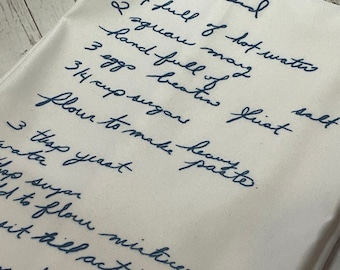 2 qt full of hot water
square marg
hand full of salt
3 eggs beaten first
3/4 cup sugar
flour to make heavy paste.
3 tbsp yeast
water
tbsp sugar
to flour mixture